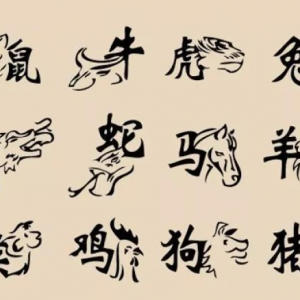 鼠 牛 虎 兔
蛇 马 羊
鸡 狗 猪